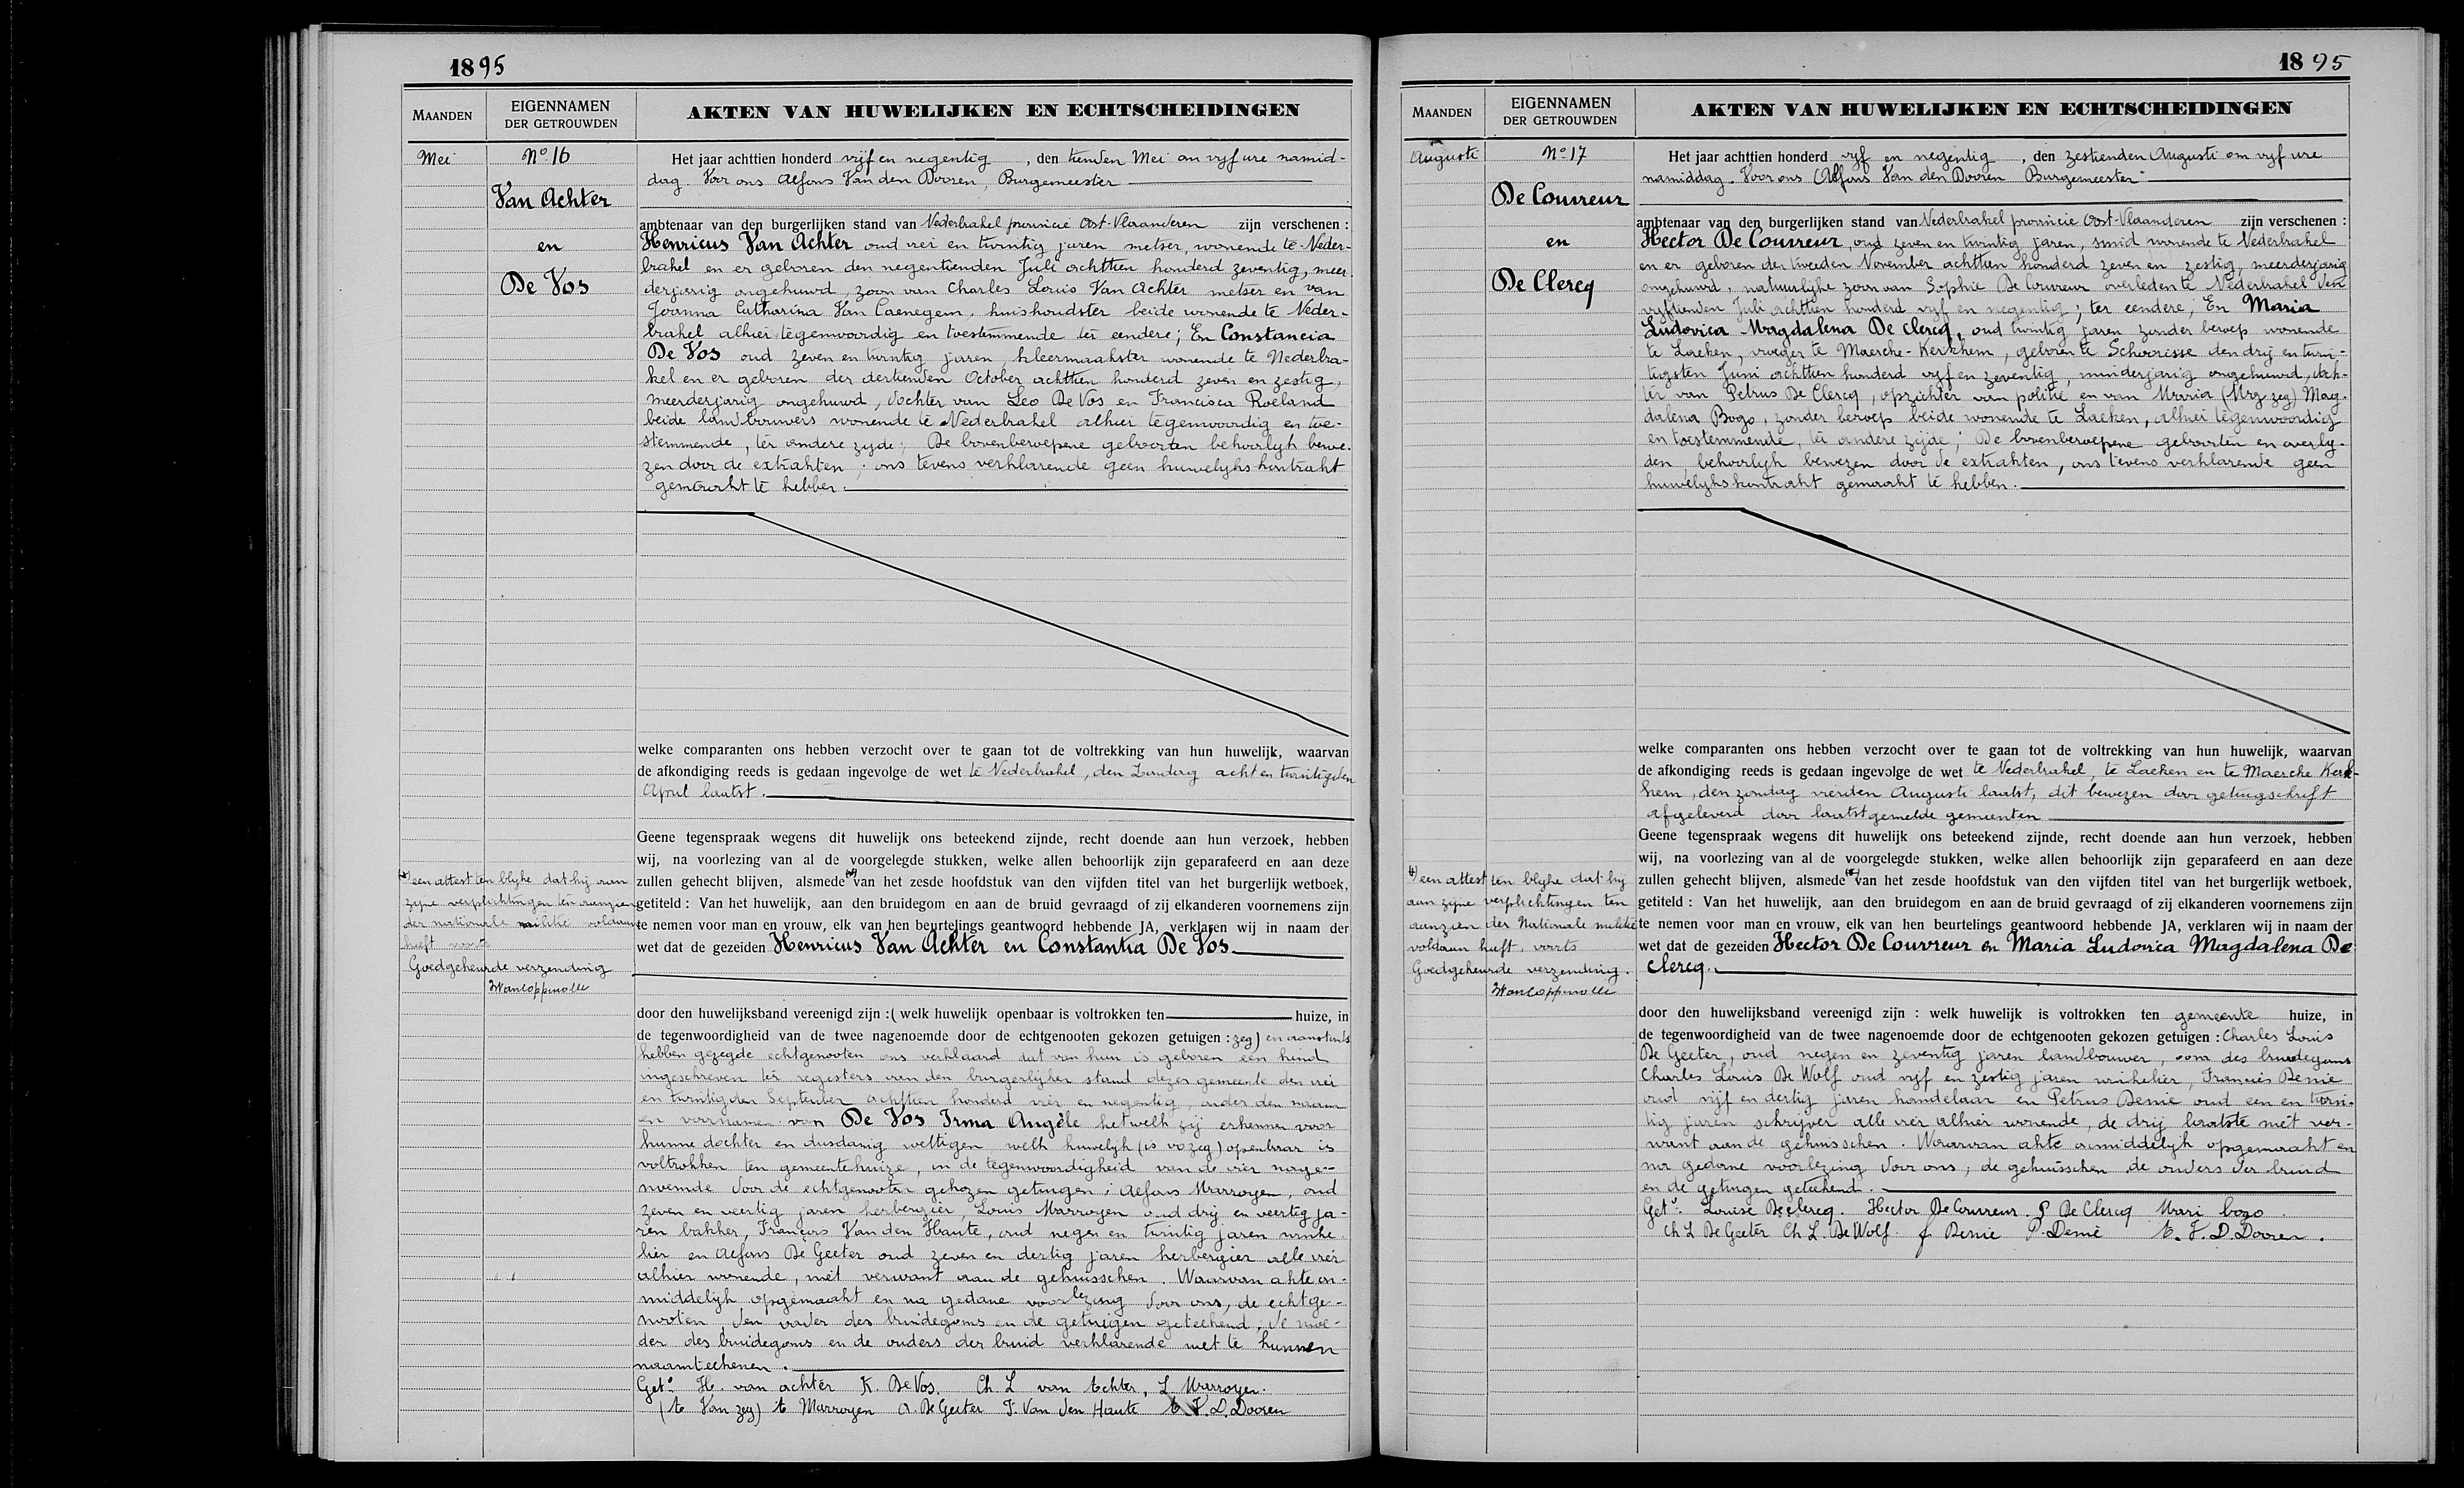 1895
MAANDEN
EIGENNAMEN
DER GETROUWDEN
AKTEN VAN HUWELIJKEN EN ECHTSCHEIDINGEN
Mei
No 16
Van Achter
en
De Vos
Het jaar achttien honderd vijf en negentig , den tienden Mei om vyf ure namid-
dag. Voor ons Alfons Van den Dooren, Burgemeester
ambtenaar van den burgerlijken stand van Nederbrakel provincie Oost-Vlaanderen zijn verschenen :
Henricus Van Achter oud vier en twintig jaren metser, wonende te Neder-
brakel en er geboren den negentienden Juli achttien honderd zeventig, meer
derjarig ongehuwd, zoon van Charles Louis Van Achter metser en van
Joanna Catharina Van Caenegem, huishoudster beide wonende te Neder-
brakel alhier tegenwoordig en toestemmende ter eendere; En Constancia
De Vos oud zeven en twintig jaren, kleermaakster wonende te Nederbra-
kel en er geboren den dertienden October achttien honderd zeven en zestig,
meerderjarig ongehuwd, dochter van Leo De Vos en Francisca Roeland
beide landbouwers wonende te Nederbrakel alhier tegenwoordig en toe-
stemmende, ter andere zyde; De bovenberoepene geboorten behoorlyk bewe-
zen door de extrakten; ons tevens verklarende geen huwelykskontrakt
gemaakt te hebben.
welke comparanten ons hebben verzocht over te gaan tot de voltrekking van hun huwelijk, waarvan
de afkondiging reeds is gedaan ingevolge de wet te Nederbrakel, den Zondag acht en twintigsten
April laatst.
Geene tegenspraak wegens dit huwelijk ons beteekend zijnde, recht doende aan hun verzoek, hebben
wij, na voorlezing van al de voorgelegde stukken, welke allen behoorlijk zijn geparafeerd en aan deze
zullen gehecht blijven, alsmede van het zesde hoofdstuk van den vijfden titel van het burgerlijk wetboek,
getiteld : Van het huwelijk, aan den bruidegom en aan de bruid gevraagd of zij elkanderen voornemens zijn
te nemen voor man en vrouw, elk van hen beurtelings geantwoord hebbende JA, verklaren wij in naam der
wet dat de gezeiden Henricus Van Achter en Constantia De Vos
een attest ten blyke dat hij aan
zijne verplichtingen ten aanzien
der nationale militie voldaan
heeft voorts
Goedgekeurde verzending
door den huwelijksband vereenigd zijn : ( welk huwelijk openbaar is voltrokken ten huize, in
de tegenwoordigheid van de twee nagenoemde door de echtgenooten gekozen getuigen : zeg) en aanstonds
hebben gezegde echtgenooten ons verklaard dat van hun is geboren een kind
ingeschreven ter registers van den burgerlijken stand dezer gemeente den vier
en twintigden September achttien honderd vier en negentig, onder den naam
en voornamen van De Vos Irma Angèle hetwelk zij erkennen voor
hunne dochter en dusdanig wettigen welk huwelyk (is vo zeg) openbaar is
voltrokken ten gemeentehuize, in de tegenwoordigheid van de vier nage-
noemde door de echtgenooten gekozen getuigen; Alfons Marroyen, oud
zeven en veertig jaren herbergier, Louis Marroyen oud drij en veertig ja-
ren bakker, François Van den Haute, oud negen en twintig jaren winke
lier en Alfons De Geeter oud zeven en dertig jaren herbergier alle vier
alhier wonende, niet verwant aan de gehuisschen. Waarvan akte on-
middelyk opgemaakt en na gedane voorlezing door ons, de echtge-
nooten den vader des bruidegoms en de getuigen geteekend; de moe-
der des bruidegoms en de ouders der bruid verklarende niet te kunnen
naamteekenen.
Get. H. van achter K. De Vos. Ch. L van Achter, L. Marroyen.
(A Van zeg) A Marroyen A. De Geeter F. Van den Haute A. V. D. Dooren
1895
MAANDEN
EIGENNAMEN
DER GETROUWDEN
AKTEN VAN HUWELIJKEN EN ECHTSCHEIDINGEN
Augusti
No 17
De Couvreur
en
De Clercq
Het jaar achttien honderd vyf en negentig , den zestienden Augusti om vyf ure
namiddag. Voor ons Alfons Van den Dooren Burgemeester
ambtenaar van den burgerlijken stand van Nederbrakel provincie Oost-Vlaanderen zijn verschenen :
Hector De Couvreur, oud zeven en twintig jaren, smid wonende te Nederbrakel
en er geboren den tweeden November achttien honderd zeven en zestig, meerderjarig
ongehuwd, natuurlyke zoon van Sophie De Couvreur overleden te Nederbrakel den
vyftienden Juli achttien honderd vyf en negentig; ter eendere; En Maria
Ludovica Magdalena De Clercq, oud twintig jaren zonder beroep wonende
te Laeken, vroeger te Maercke-Kerkhem, geboren te Schoorisse den drij en twin-
tigsten Juni achttien honderd vyf en zeventig, minderjarig ongehuwd, doch-
ter van Petrus De Clercq, opzichter van politie en van Maria (Mrg zeg) Mag-
dalena Bogo, zonder beroep beide wonende te Laeken, alhier tegenwoordig
en toestemmende, ter andere zijde; De bovenberoepene geboorten en overly-
den, behoorlyk bewezen door de extrakten, ons tevens verklarende geen
huwelykskontrakt gemaakt te hebben.
welke comparanten ons hebben verzocht over te gaan tot de voltrekking van hun huwelijk, waarvan
de afkondiging reeds is gedaan ingevolge de wet te Nederbrakel, te Laeken en te Maercke Kerk-
hem, den zondag vierden Augusti laatst, dit bewezen door getuigschrift
afgeleverd door laatstgemelde gemeenten
Geene tegenspraak wegens dit huwelijk ons beteekend zijnde, recht doende aan hun verzoek, hebben
wij, na voorlezing van al de voorgelegde stukken, welke allen behoorlijk zijn geparafeerd en aan deze
zullen gehecht blijven, alsmede van het zesde hoofdstuk van den vijfden titel van het burgerlijk wetboek,
getiteld : Van het huwelijk, aan den bruidegom en aan de bruid gevraagd of zij elkanderen voornemens zijn
te nemen voor man en vrouw, elk van hen beurtelings geantwoord hebbende JA, verklaren wij in naam der
wet dat de gezeiden Hector De Couvreur en Maria Ludovica Magdalena De
Clercq.
een attest ten blyke dat hij
aan zijne verplichtingen ten
aanzien der Nationale militie
voldaan heeft, voorts
Goedgekeurde verzending.
door den huwelijksband vereenigd zijn : welk huwelijk is voltrokken ten gemeente huize, in
de tegenwoordigheid van de twee nagenoemde door de echtgenooten gekozen getuigen : Charles Louis
De Geeter, oud negen en zeventig jaren landbouwer, oom des bruidegoms
Charles Louis De Wolf oud vijf en zestig jaren winkelier, Francies Demie
oud vijf en dertig jaren handelaar en Petrus Demie oud een en twin-
tig jaren schrijver alle vier alhier wonende, de drij laatste niet ver-
want aan de gehuisschen. Waarvan akte onmiddelyk opgemaakt en
na gedane voorlezing door ons, de gehuisschen de ouders der bruid
en de getuigen geteekend.
Get. Louise Declercq. Hector De Couvreur. P De Clercq Mari bogo
Ch L De Geeter Ch L. De Wolf. f. Demie P. Demie A. V. D. Dooren.